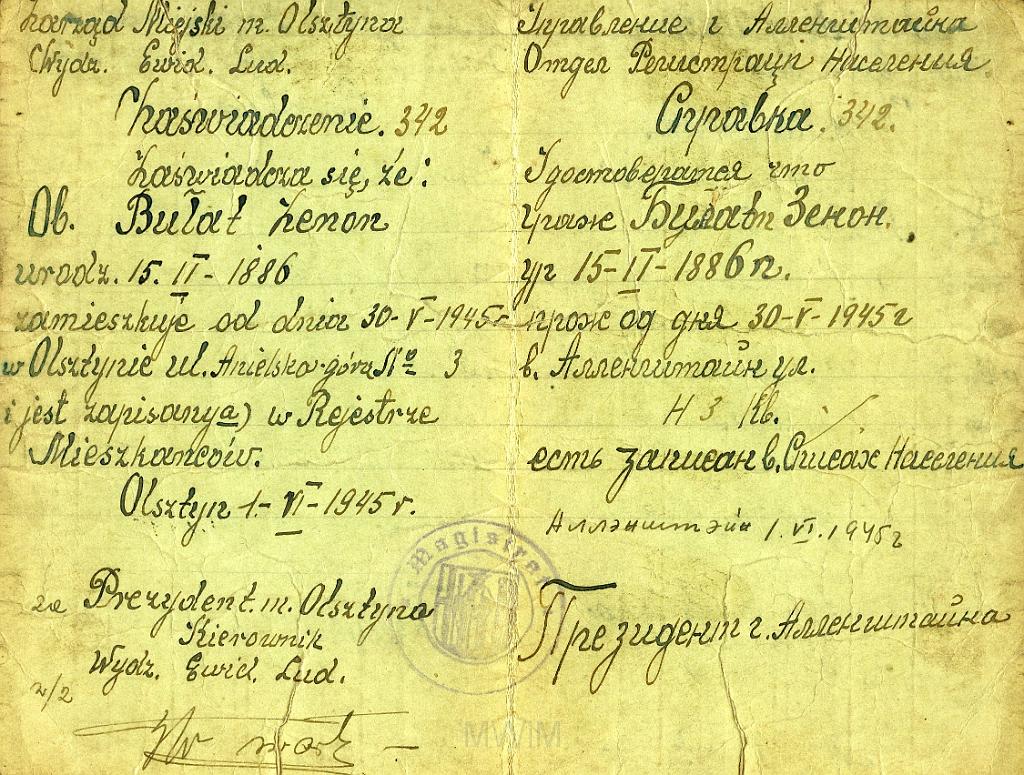 Zarząd Miejski m. Olsztyna
Wydz. Ewid. Lud.
Zaświadczenie. 342
Zaświadcza się, że:
Ob. Bułat Zenon
urodz. 15. II - 1886
zamieszkuje od dnia 30-V-1945r
w Olsztynie ul. Anielska-góra No 3
i jest zapisany(a) w Rejestrze
Mieszkańców.
Olsztyn 1-VI-1945r.
za Prezydent. m. Olsztyna
Kierownik
Wydz. Ewid. Lud.
Управление г Алленштайна
Отдел Регистрации Населения
Справка. 342.
Удостоверятся что
граж Булат Зенон.
уг 15-II-1886г.
прож од дня 30-V-1945г
в. Алленштайн ул.
Н 3 Кв.
есть записан в. Списах Населения
Аллэнштэйн 1.VI.1945г
Президент г. Алленштайна
Magistrat
MWIM